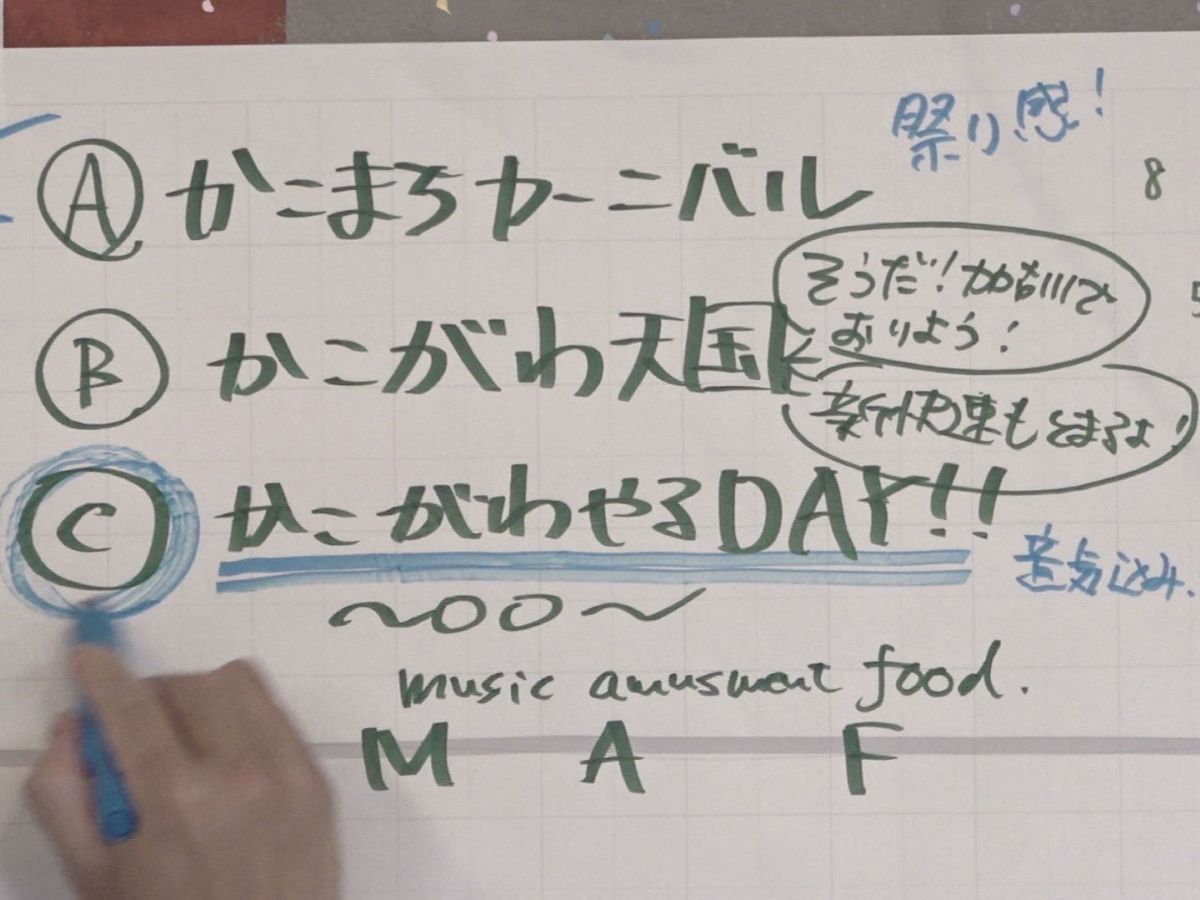 祭り感!
Ⓐ かこまちカーニバル
8
そうだ!加古川で
おりよう!
Ⓑ かこがわ天国
新快速もとまるよ!
Ⓒ かこがわやるDAY!!
込み.
〜〇〇〜
music amusment food.
M A F